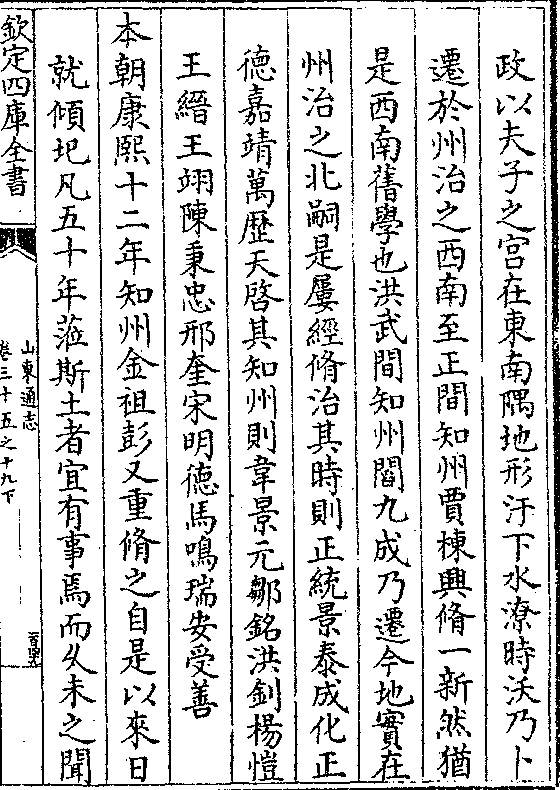 政以夫子之宮在東南隅地形汙下水潦時沃乃卜
遷於州治之西南至正間知州賈棟興脩一新然猶
是西南舊學也洪武間知州閻九成乃遷今地實在
州治之北嗣是屢經脩治其時則正統景泰成化正
德嘉靖萬歷天啓其知州則韋景元鄒銘洪釗楊愷
王縉王翊陳秉忠邢奎宋明德馬鳴瑞安受善
本朝康熙十二年知州金祖彭又重脩之自是以來日
就傾圮凡五十年蒞斯土者宜有事焉而久未之聞
欽定四庫全書
山東通志
卷三十五之十九下